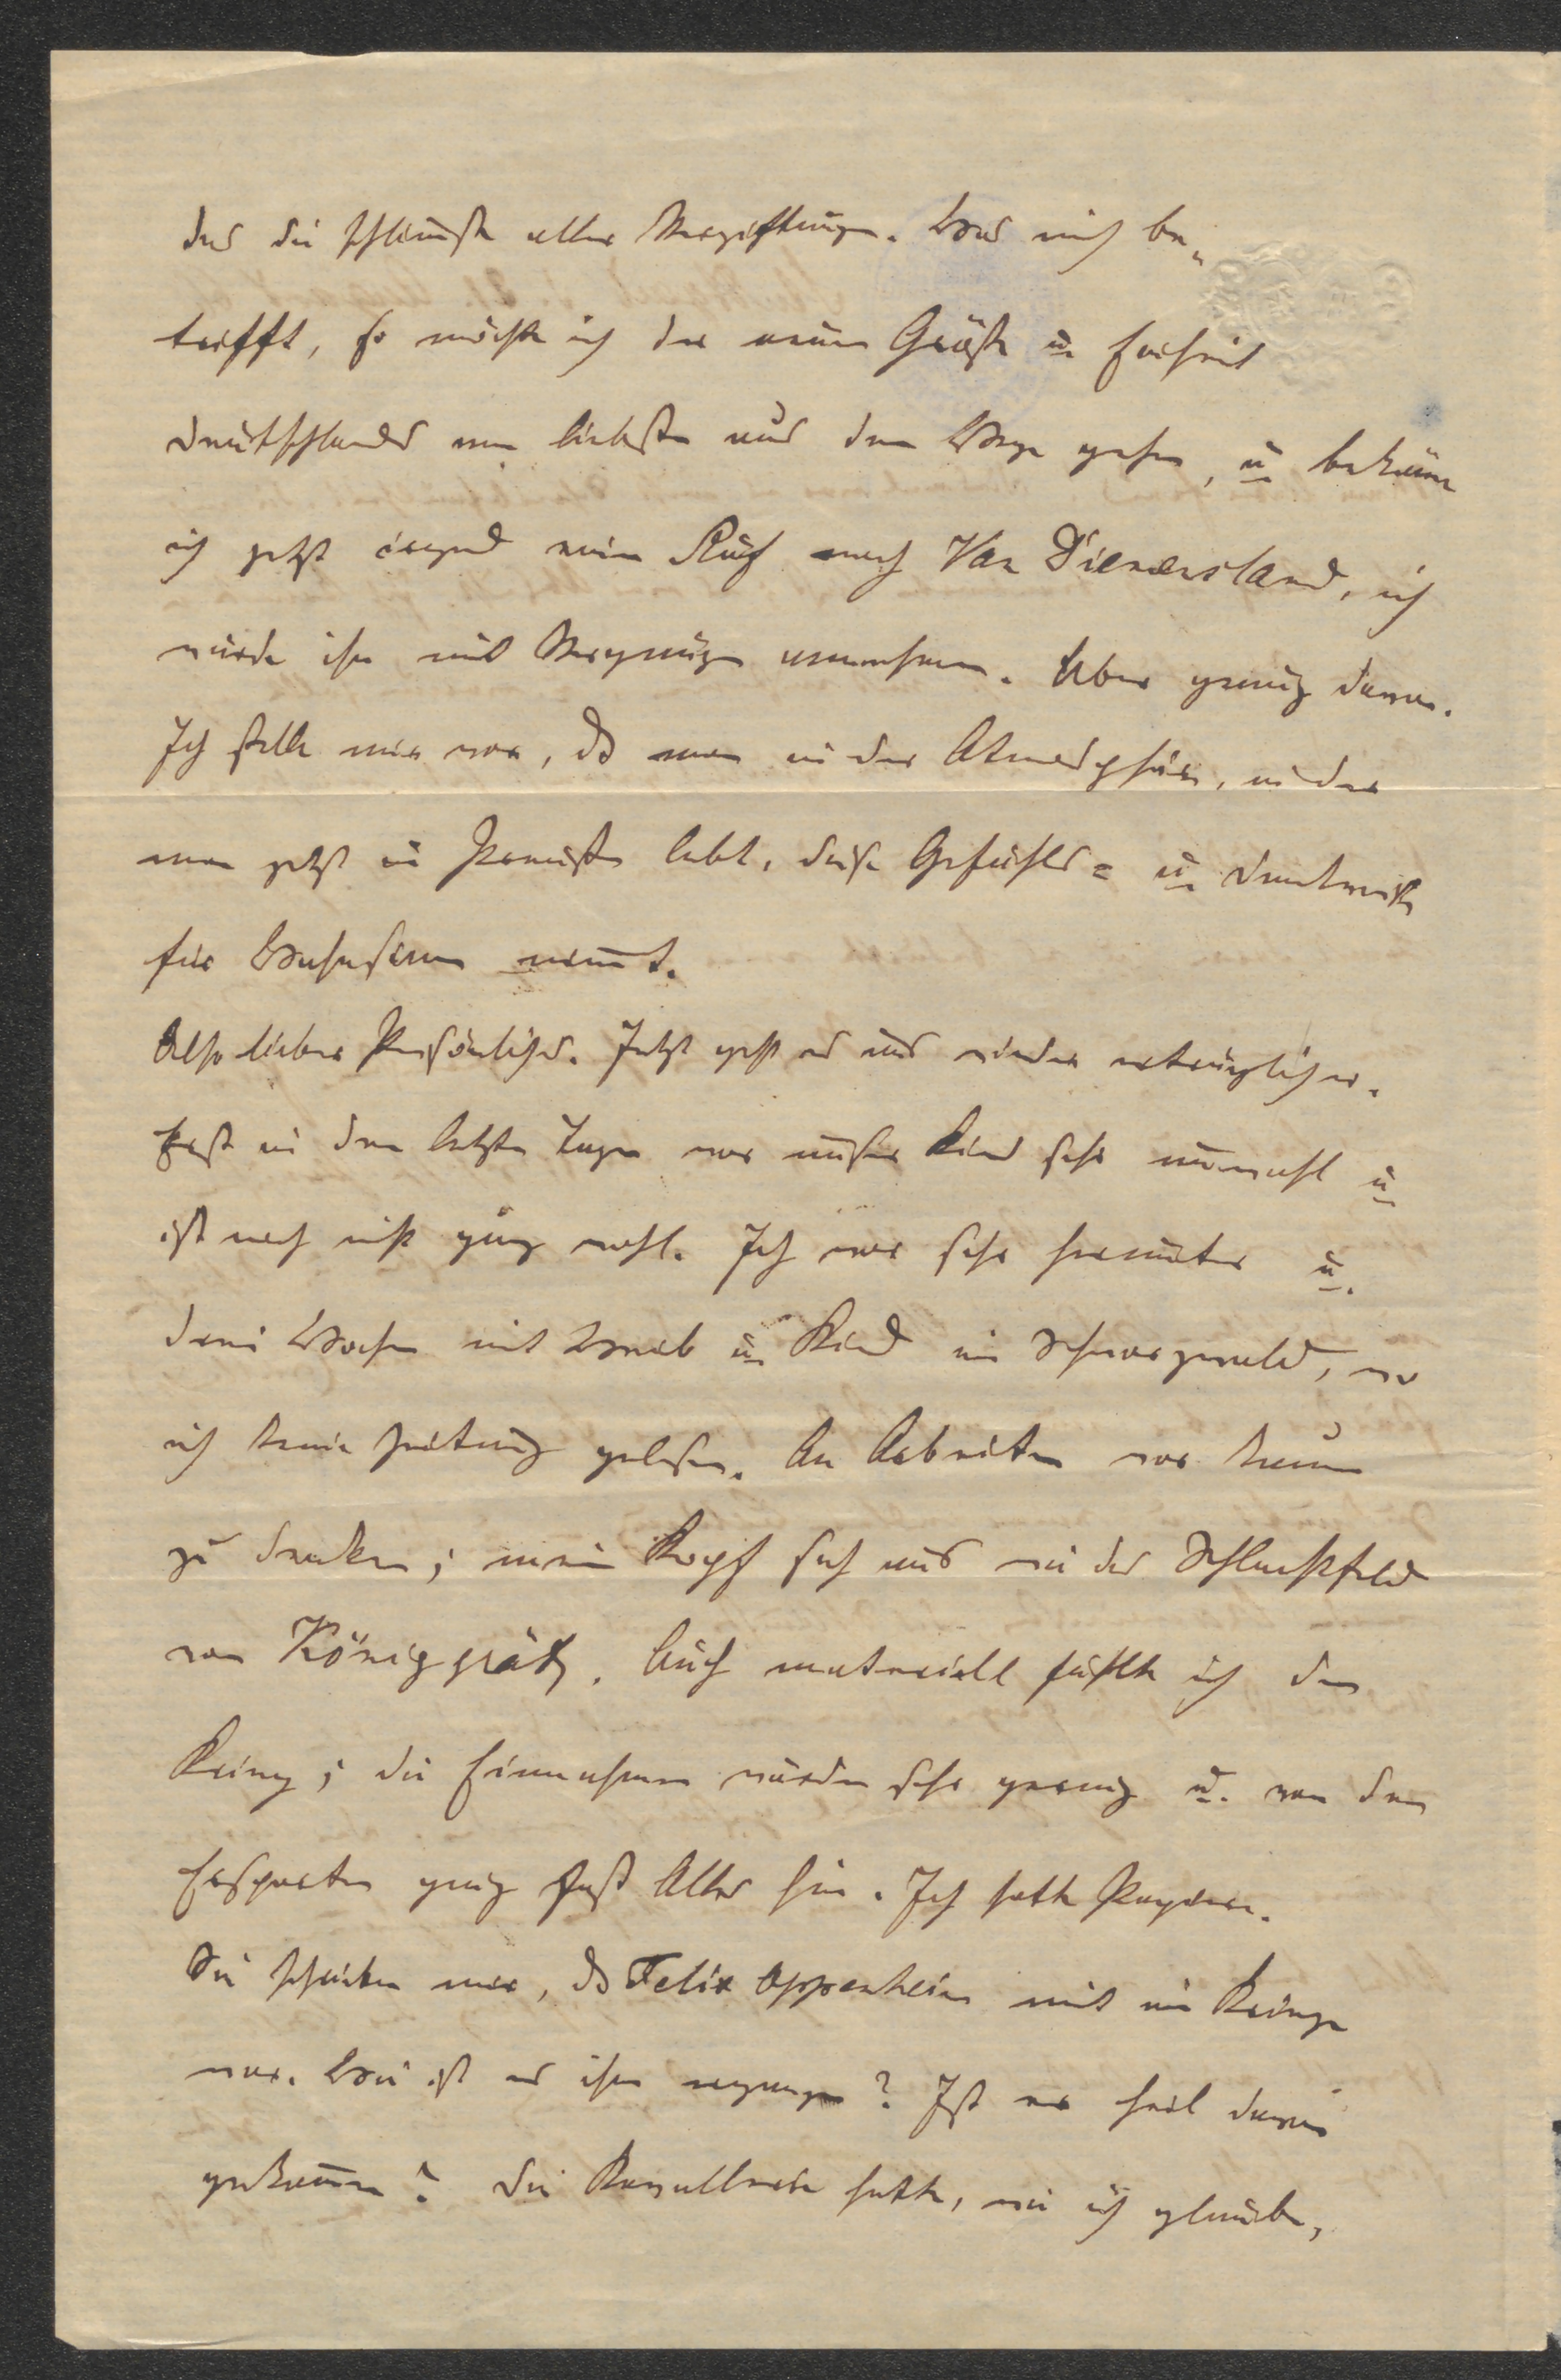 das die schlimste aller Vergiftungen. Was mich be-
trifft, so möchte ich der neuen Größe u. Freiheit
Deutschlands am liebsten aus dem Wege gehen, u. bekäme
ich jetzt irgend einen Ruf nach Van Diemensland, ich
würde ihn mit Vergnügen annehmen. Aber genug davon.
Ich stelle mir vor, dß man in der Atmosphäre, in der
man jetzt in Preußen lebt, diese Gefühls= u. Denkweise
für Wahnsinn nimt.
Also lieber Persönliches. Jetzt geht es uns wieder erträglicher.
Erst in den letzten Tagen war unser Kind sehr unwohl u.
ist noch nicht ganz wohl. Ich war sehr herunter u.
drei Wochen mit Weib u. Kind im Schwarzwald, wo
ich keine Zeitung gelesen. An Arbeiten war kaum
zu denken; mein Kopf sah aus wie das Schlachtfeld
von Königgrätz. Auch materiell fühlte ich den
Krieg; die Einnahmen wurden sehr gering u. von dem
Ersparten ging fast Alles hin. Ich hatte Papiere.
Sie schrieben mir, dß Felix Oppenheim mit im Kriege
war. Wie ist es ihm ergangen? Ist er heil davon
gekomen? Die Kavallerie hatte, wie ich glaube,